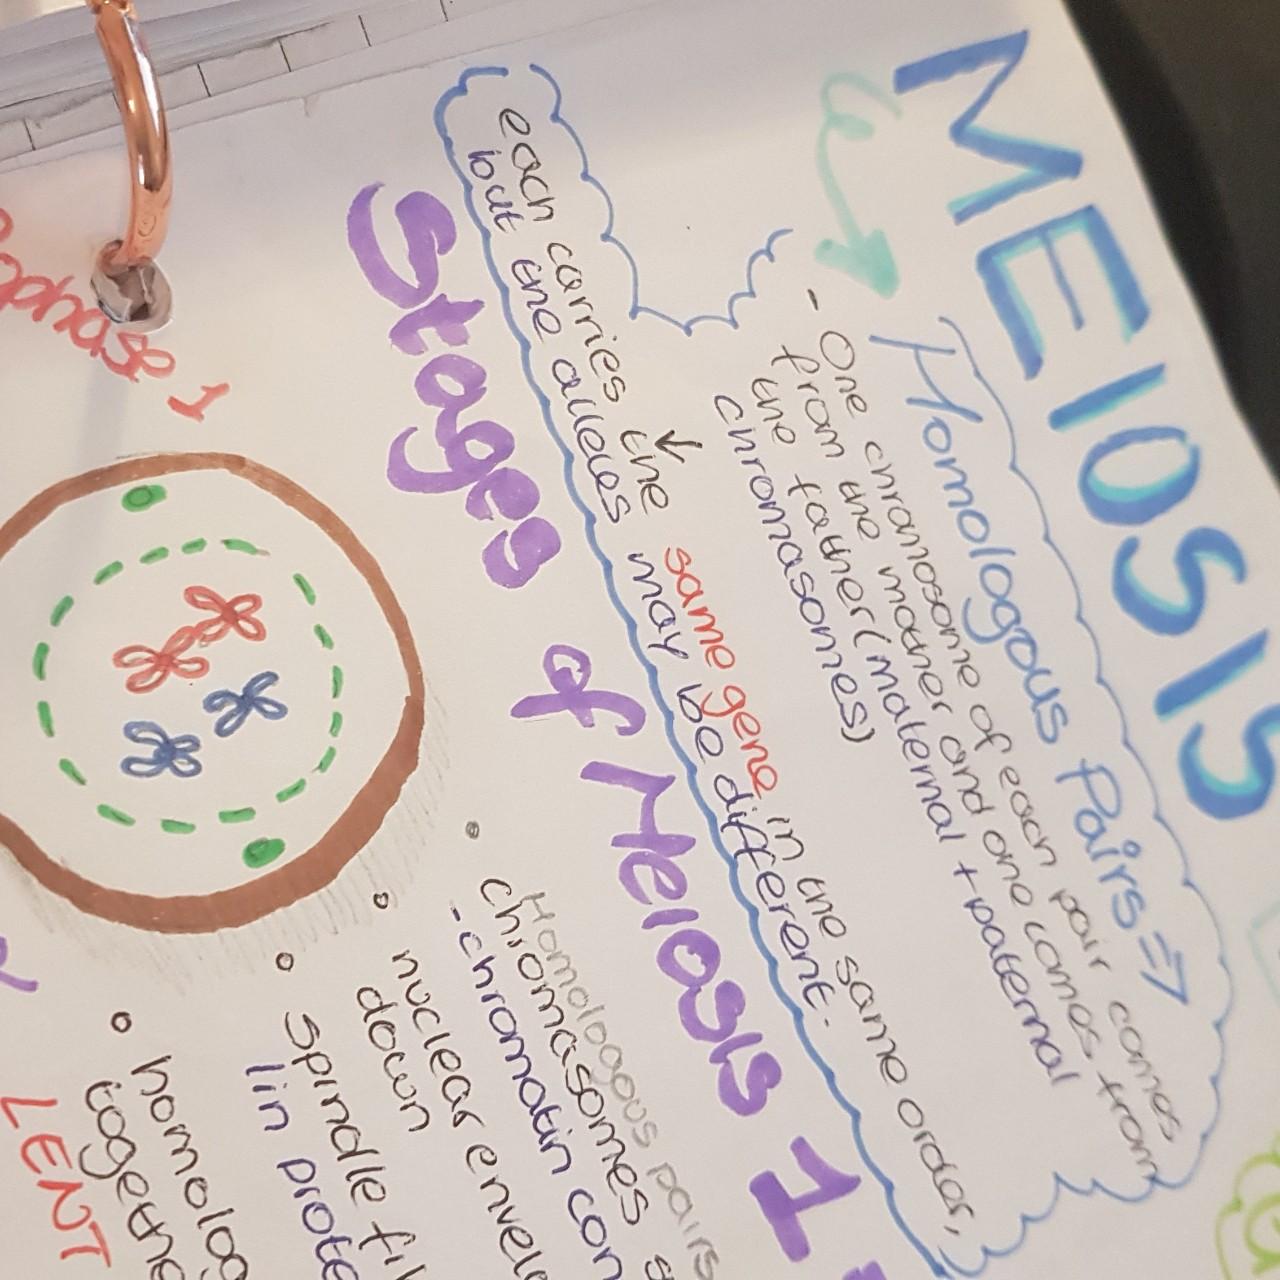 MEIOSIS
Homologous Pairs =>
- One chromosome of each pair comes
from the mother and one comes from
the father (maternal + paternal
chromasomes)
each carries the same gene in the same order,
but the alleles may be different.
Stages of Meiosis 1
ophase 1
Homologous pairs
chromasomes
- chromatin con
nuclear envel
down
spindle fi
lin prote
homolog
togethe
LENT